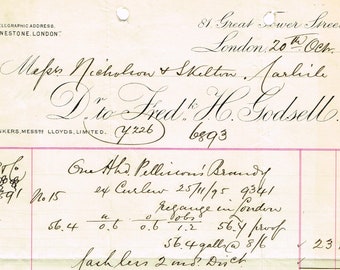 TELEGRAPHIC ADDRESS.
81, Great Tower Street
NESTONE, LONDON"
London, 20th Oct.
Messrs Nicholson & Skelton Carlisle
Dr. to Fredk. H. Godsell.
NKERS, MESSRS LLOYDS, LIMITED.
y226 6893
One Hhd Pellisson's Brandy
891 No 15 ex Curlew 25/11/95 9341
Regauge in London
u o obs
56.4 0.6 0.6 1.2 56.4 proof
56.4 galls @ 8/6 23
Cash less 2 mo. Disct